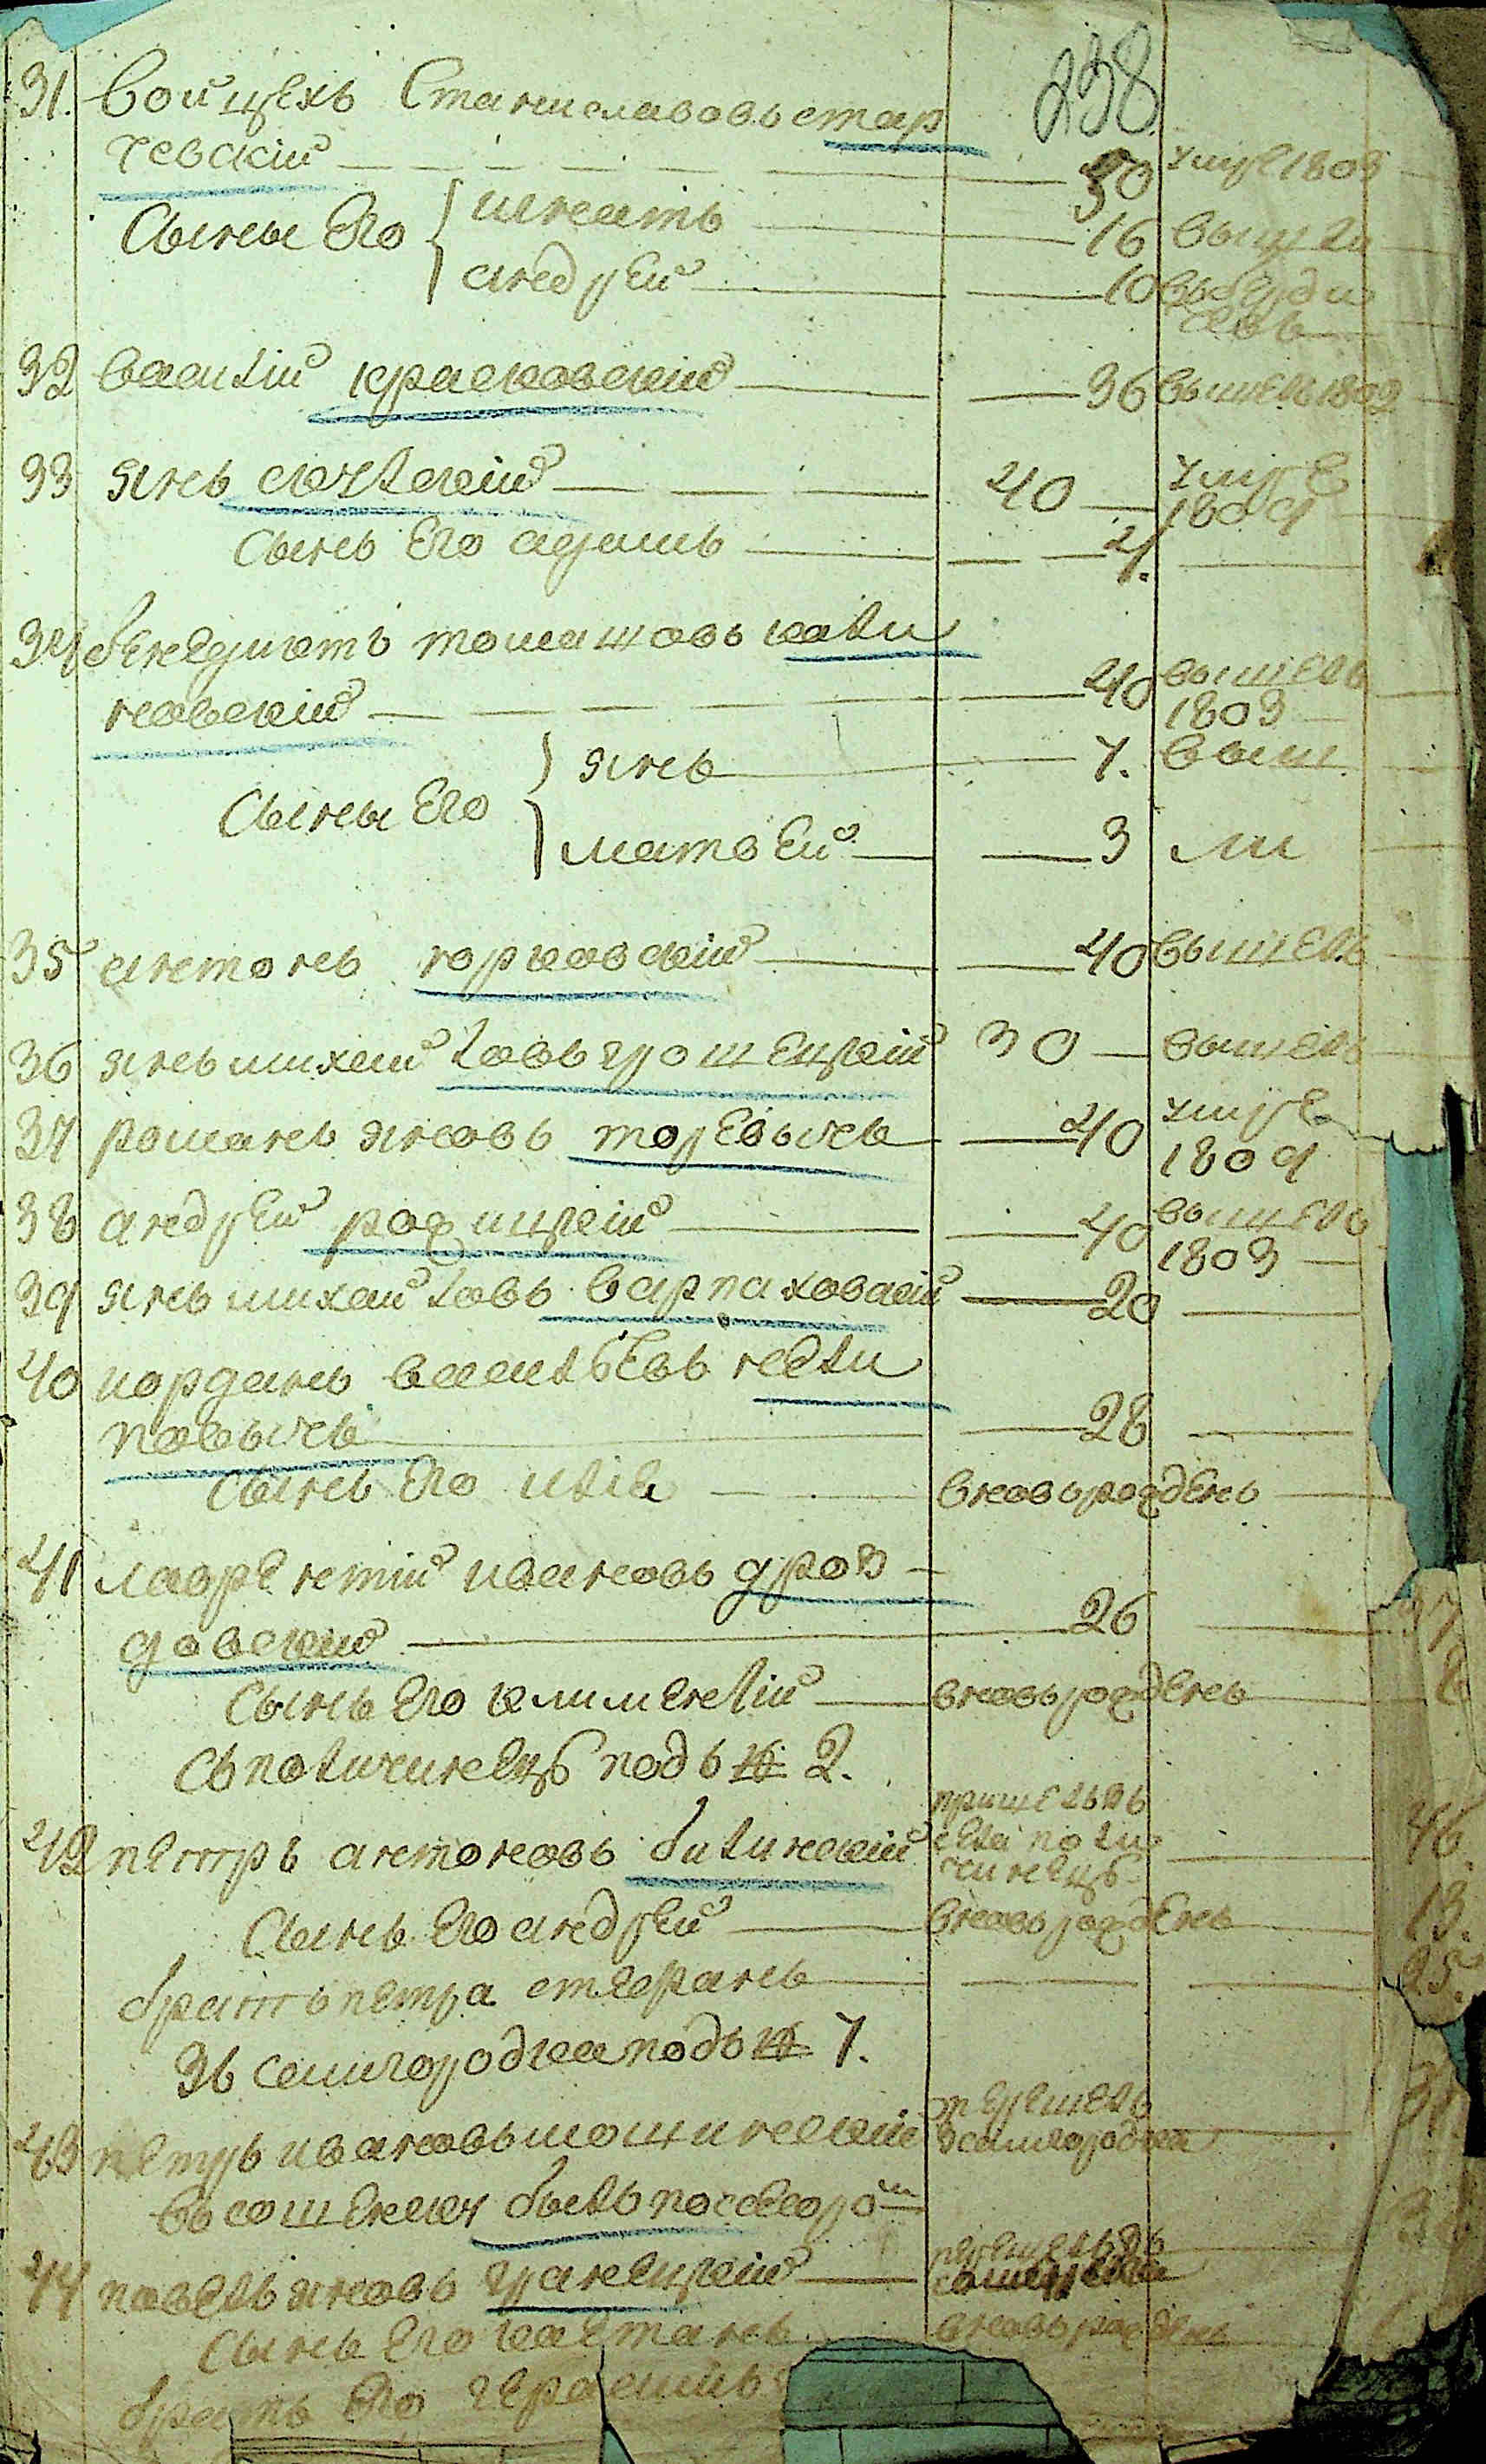 238
31. Войцехъ Станиславовъ стар
чевскій 50 умре 1803
Сыны Его игнатъ 16 вышли
андрей 10
32 Василій красновский 36 вышелъ 1802
33 янъ 40 умре
1809
Сынъ Его адамъ 4.
34 бенедиктъ томашовъ кали
новскій 40 вышелъ
1803
Сыны Его янъ 7. выш
матвей 3 ли
35 антонъ горковскій 40 вышелъ
36 янъ михайловъ грошецкій 30 вышелъ
37 романъ яновъ торевычъ 40 умре
1809
38 андрей рожицкій 40 вышелъ
1803
39 янъ михайловъ варпаховскій 20
40 иорданъ васильевъ нели
повычъ 28
Сынъ Его илія вновь рожденъ
41 лаврентий ивановъ дроз-
довскій 26
Сынъ Его климентій вновь рожденъ
Съ поличинецъ подъ № 2.
42 петръ антоновъ билинскій пришелъ зъ
села поли
чинецъ 46
Сынъ Его андрей вновь рожденъ 13.
братъ петра 25.
Зъ самгородка подъ № 7.
43 петръ ивановъ мошинский перешелъ
зсамгородка
въ сошенску былъ по
44 павелъ яновъ грановский
Сынъ Его каетанъ вновь рожденъ
братъ Его герасимъ